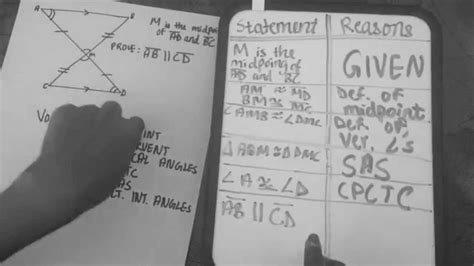 A
B
M is the
midpoint
of AD and BC
M
PROVE: AB || CD
C
D
VO
INT
UENT
CAL ANGLES
TC
AS
LT. INT. ANGLES
Statement
Reasons
M is the
midpoint of
AD and BC
GIVEN
AM ≅ MD
BM ≅ MC
Def. of
midpoint
∠AMB ≅ ∠DMC
Def of
Ver. ∠s
△ABM ≅ △DMC
SAS
∠A ≅ ∠D
CPCTC
AB || CD